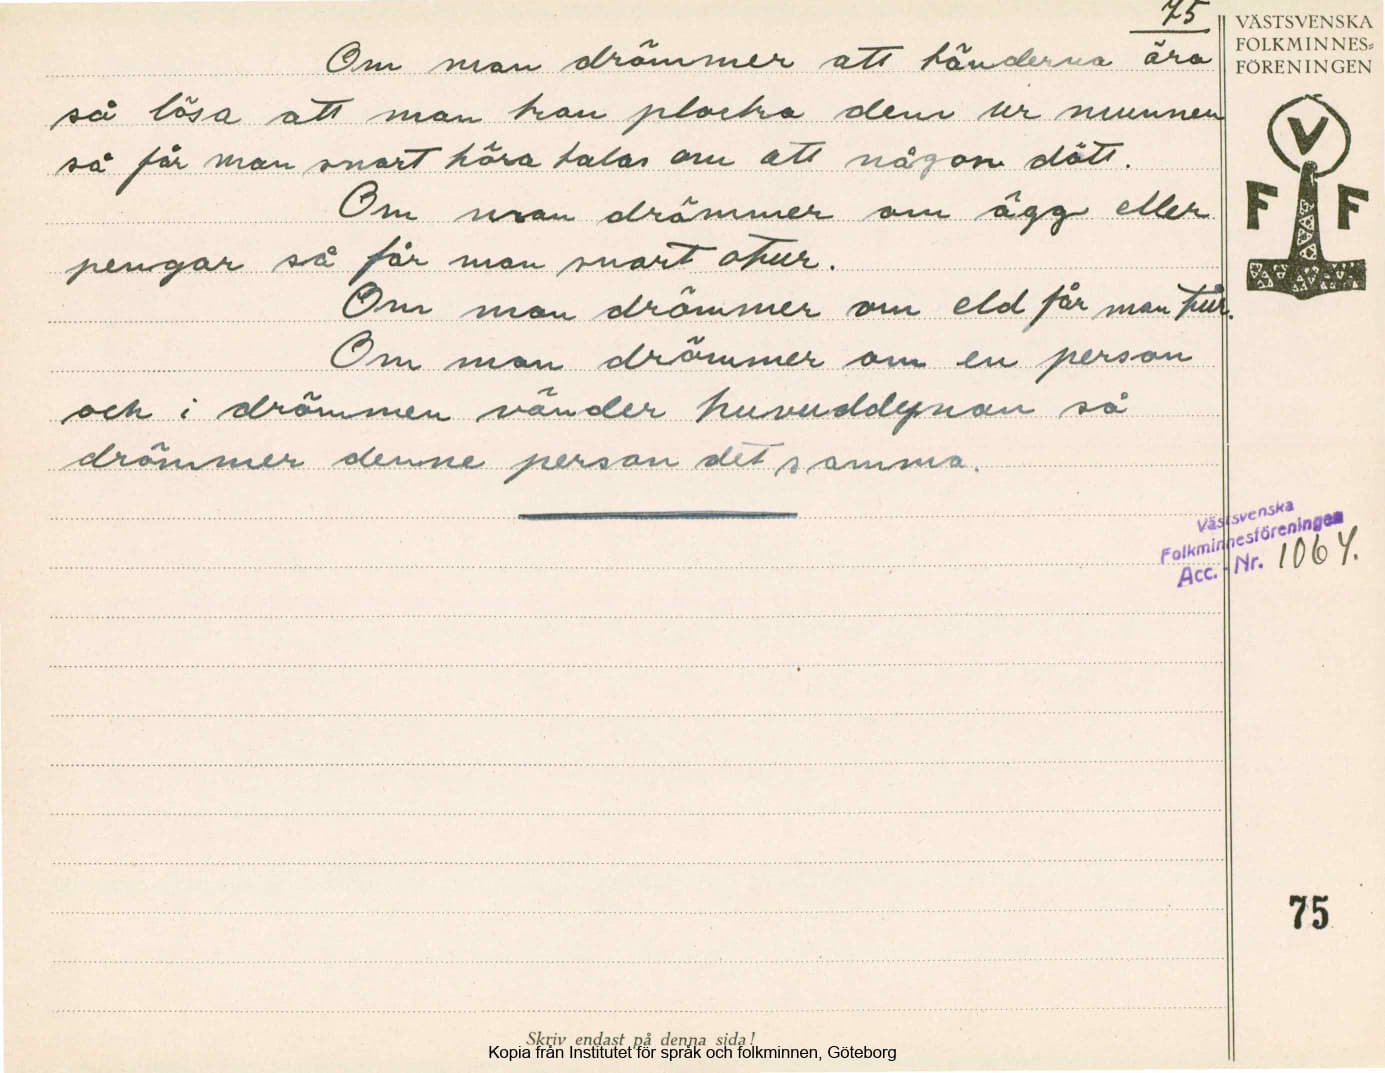 75
VÄSTSVENSKA
FOLKMINNES=
FÖRENINGEN
V
F F
Om man drömmer att tänderna äro
så lösa att man kan plocka dem ur munnen
så får man snart höra talas om att någon dött.
Om man drömmer om ägg eller
pengar så får man snart otur.
Om man drömmer om eld får man tur.
Om man drömmer om en person
och i drömmen vänder huvuddynan så
drömmer denne person det samma.
Västsvenska
Folkminnesföreningen
Acc.-Nr. 1064.
75
Skriv endast på denna sida!
Kopia från Institutet för språk och folkminnen, Göteborg